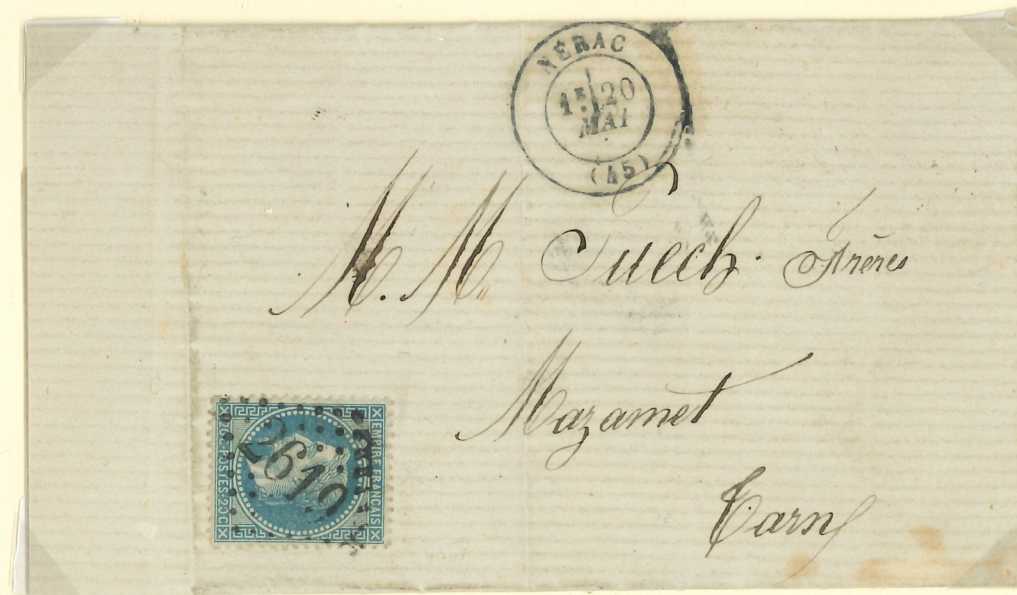 NÉRAC
1E 20
MAI
(45)
M. M. Puech. frères
Mazamet
Tarn
EMPIRE FRANÇAIS
POSTES 20 C
2619